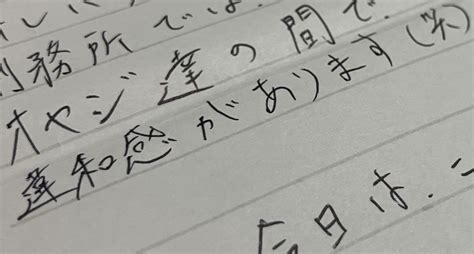 務所では
オヤジ達の間で.
違和感があります(笑)
今日は.